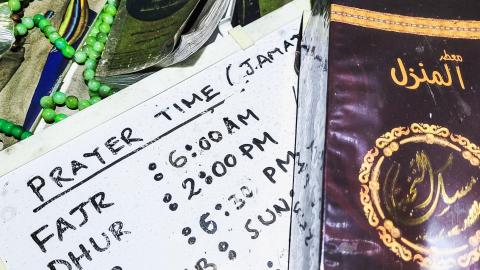 PRAYER TIME (JAMA
FAJR : 6:00AM
DHUR : 2:00PM
: 6:30 PM
: SUN
معطر
المنزل